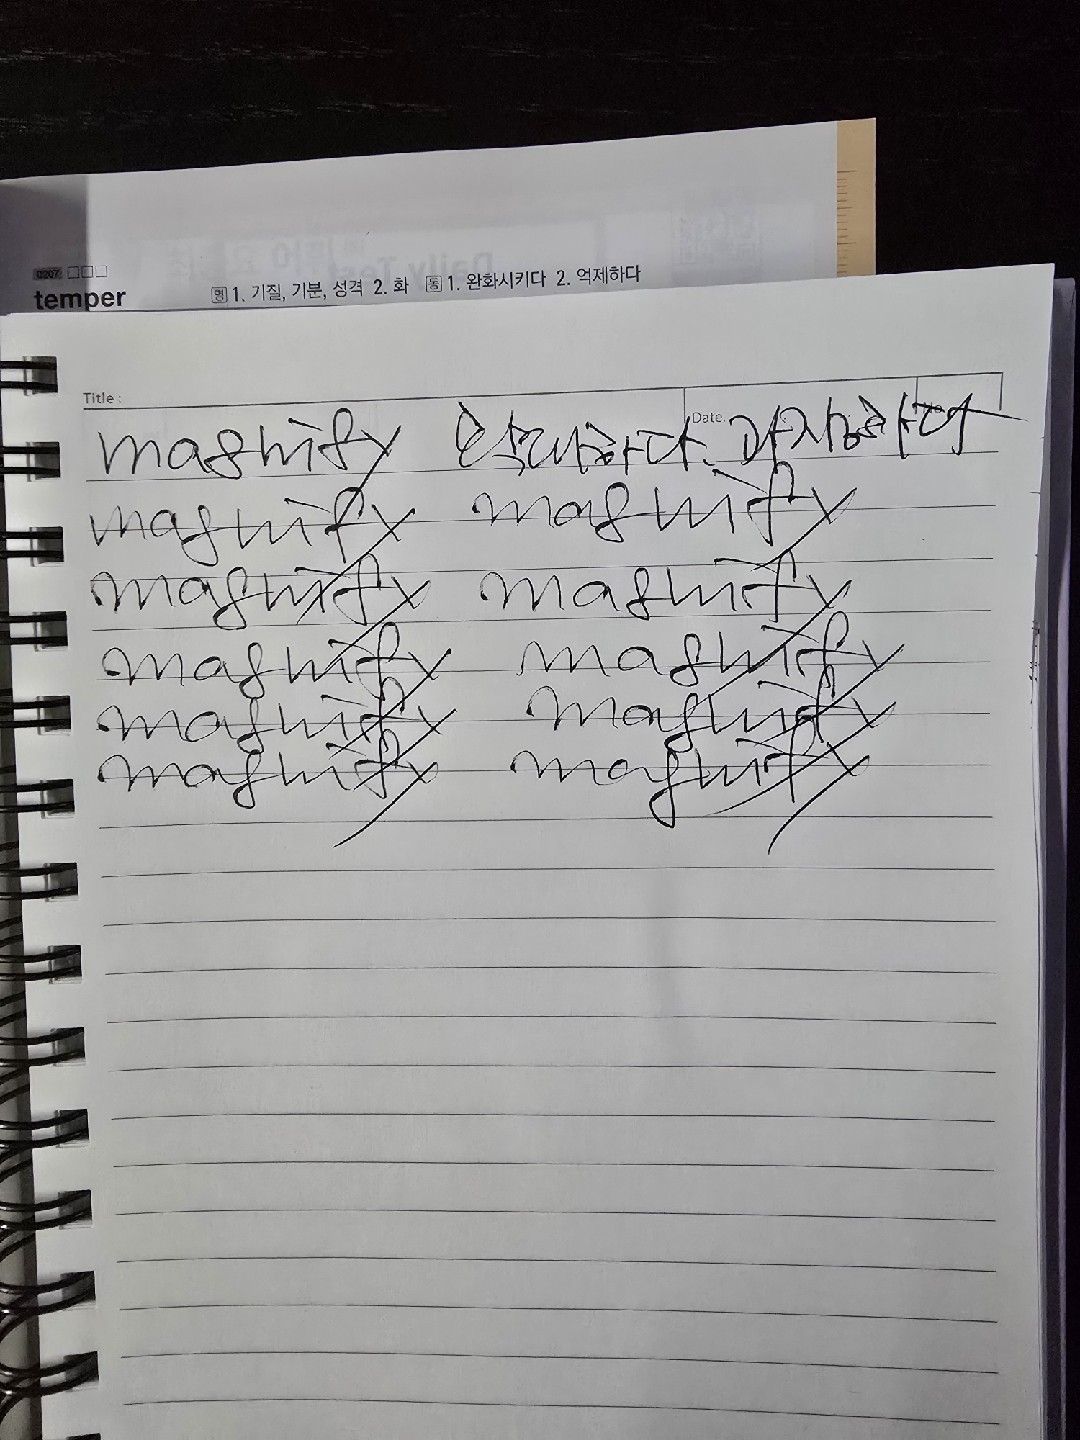 0207
temper 명 1. 기질, 기분, 성격 2. 화 동 1. 완화시키다 2. 억제하다
Title :
Date.
magnify 확대하다. 과장하다
magnify magnify
magnify magnify
magnify magnify
magnify magnify
magnify magnify